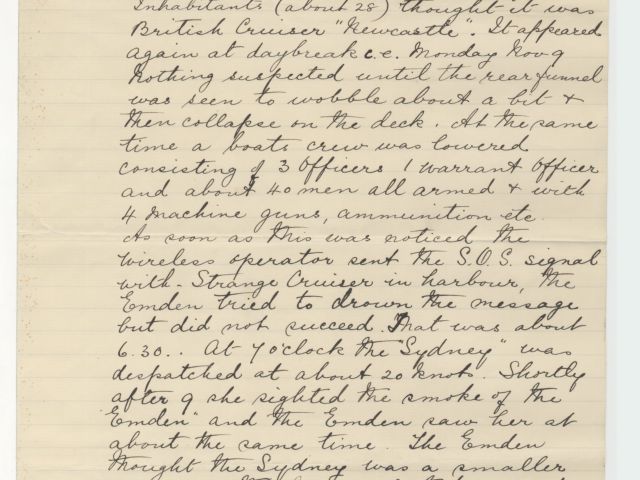 Inhabitants (about 28) thought it was
British Cruiser "Newcastle". It appeared
again at daybreak i.e. Monday Nov 9
Nothing suspected until the rear funnel
was seen to wobble about a bit &
then collapse on the deck. At the same
time a boats crew was lowered
consisting of 3 Officers 1 Warrant Officer
and about 40 men all armed & with
4 machine guns, ammunition etc.
As soon as this was noticed the
wireless operator sent the S.O.S. signal
with - Strange Cruiser in harbour, the
Emden tried to drown the message
but did not succeed. That was about
6.30.. At 7 o'clock the "Sydney" was
despatched at about 20 knots. Shortly
after 9 she sighted the smoke of the
"Emden" and the Emden saw her at
about the same time. The Emden
thought the Sydney was a smaller